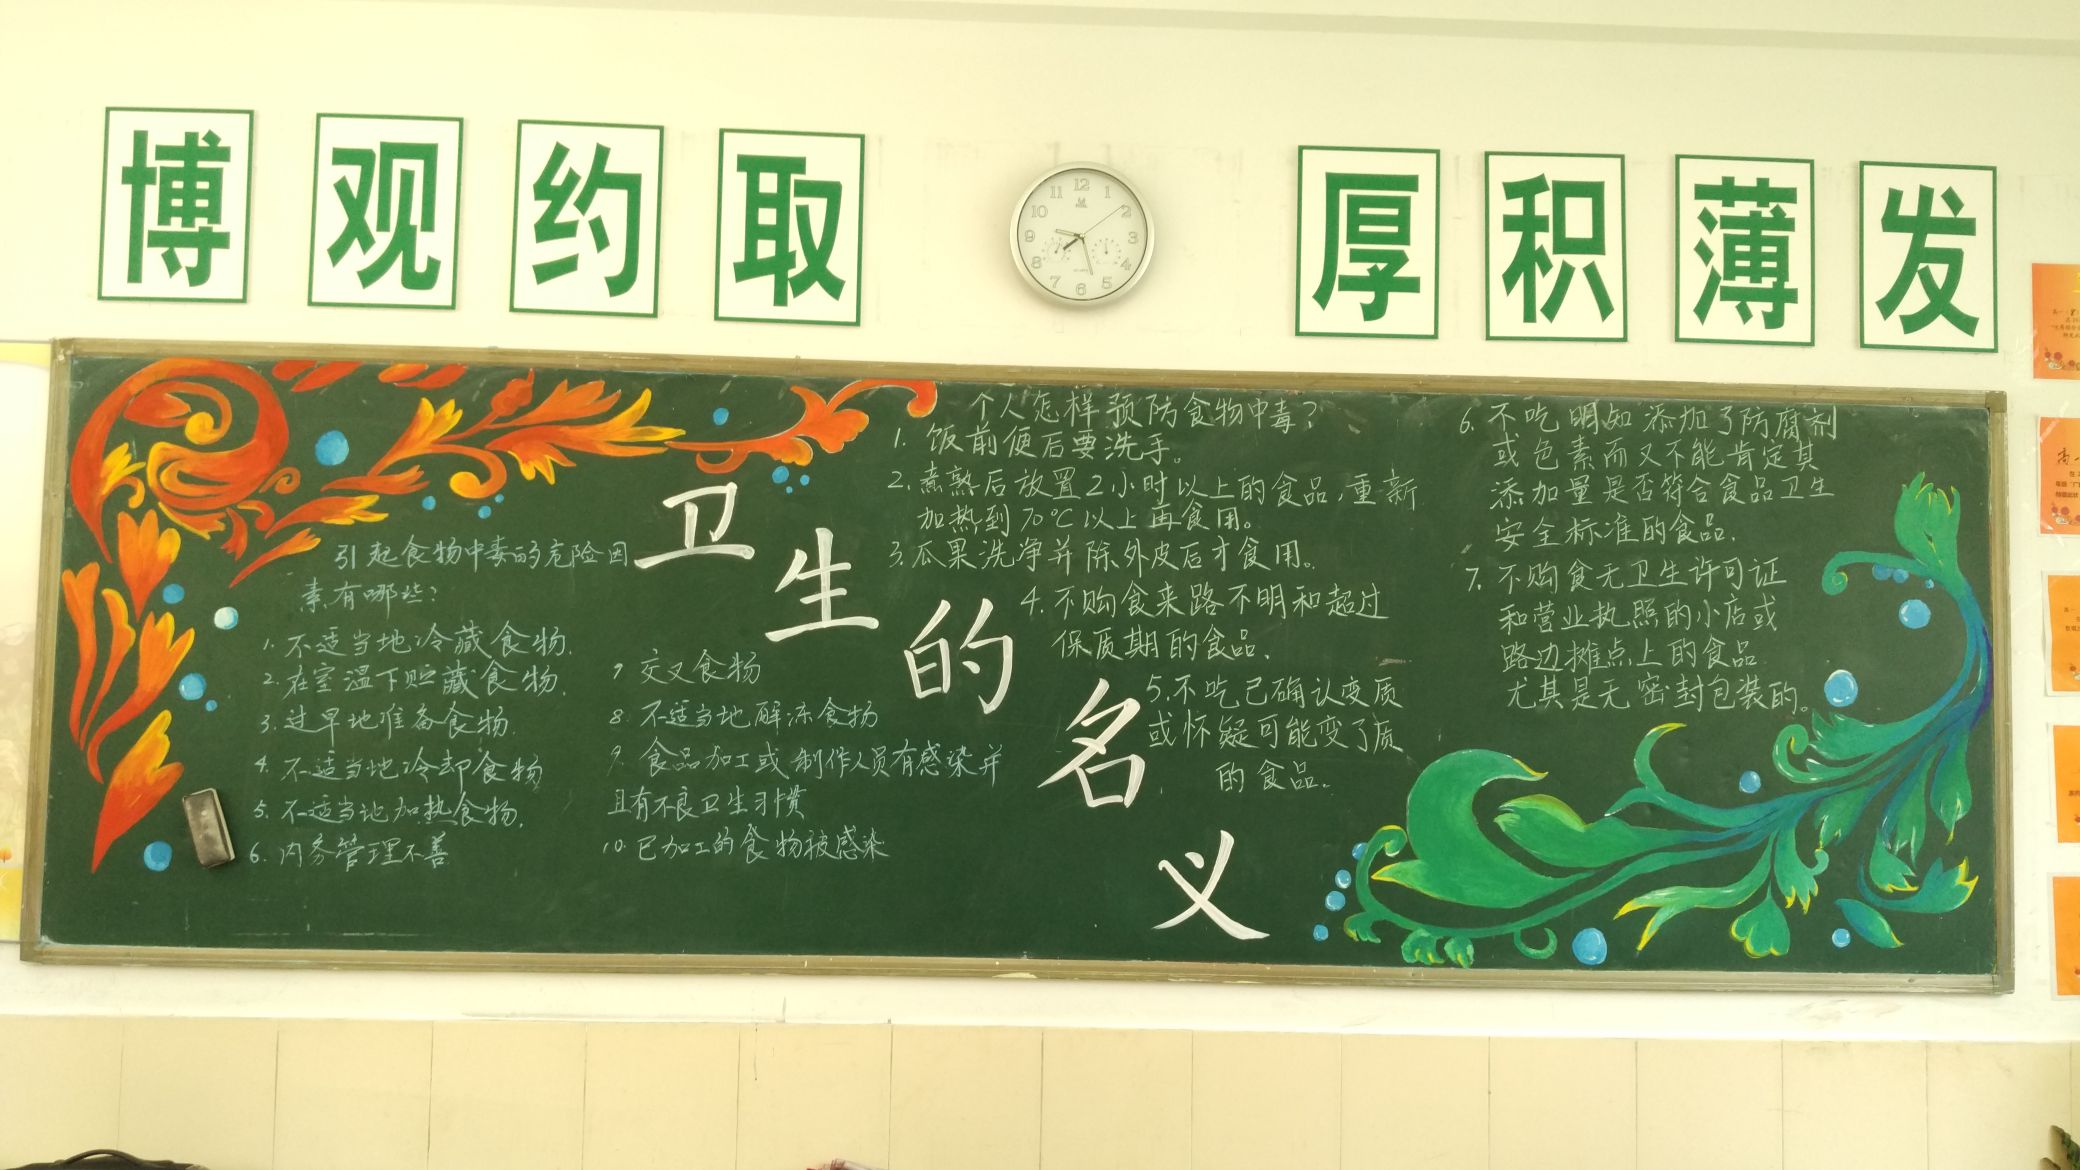 博观约取
厚积薄发
卫生的名义
引起食物中毒的危险因
素有哪些?
1. 不适当地冷藏食物.
2. 在室温下贮藏食物.
3. 过早地准备食物.
4. 不适当地冷却食物
5. 不适当地加热食物.
6. 内务管理不善
7 交叉食物
8. 不适当地解冻食物
9. 食品加工或制作人员有感染并
且有不良卫生习惯
10. 已加工的食物被感染
个人怎样预防食物中毒?
1. 饭前便后要洗手。
2. 煮熟后放置2小时以上的食品,重新
加热到70℃以上再食用。
3. 瓜果洗净并除外皮后才食用。
4. 不购食来路不明和超过
保质期的食品.
5. 不吃已确认变质
或怀疑可能变了质
的食品。
6. 不吃明知添加了防腐剂
或色素而又不能肯定其
添加量是否符合食品卫生
安全标准的食品.
7. 不购食无卫生许可证
和营业执照的小店或
路边摊点上的食品.
尤其是无密封包装的。
12
1
2
3
4
5
6
7
8
9
10
11